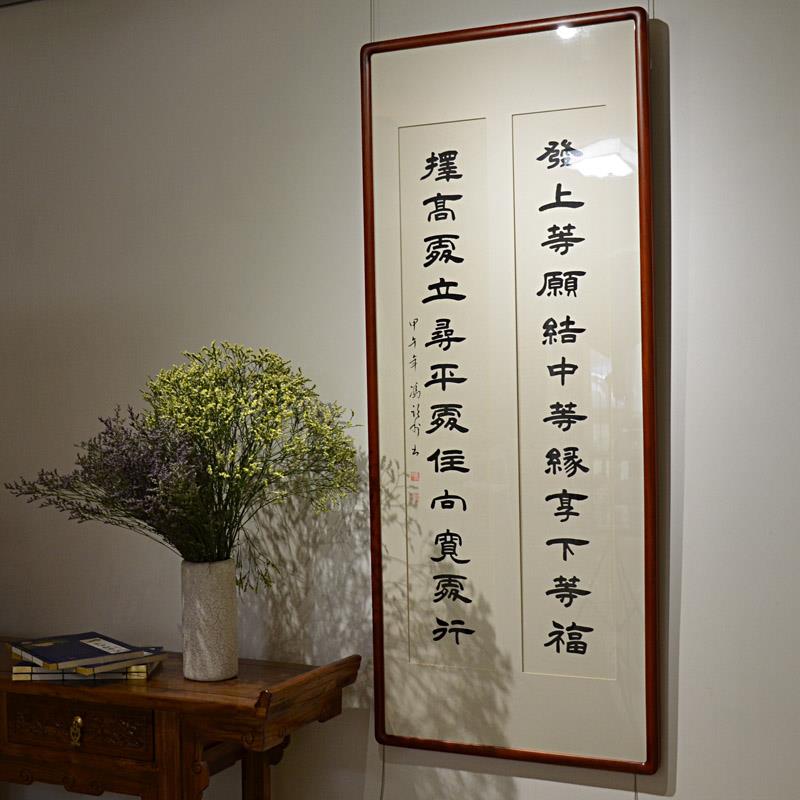 發上等願結中等緣享下等福
擇高處立尋平處住向寬處行
甲午年